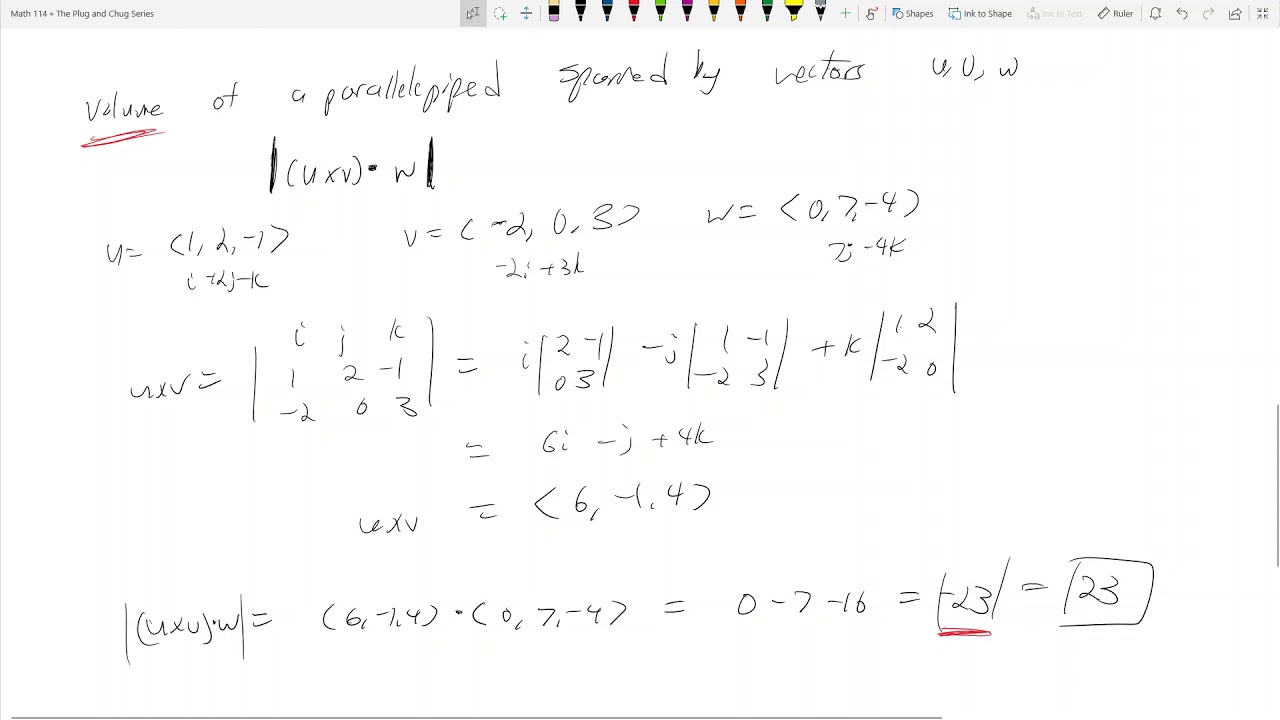 Math 114 » The Plug and Chug Series
Shapes Ink to Shape Ink to Text Ruler
Volume of a parallelepiped spanned by vectors u, v, w
|(u×v)• w|
u= <1, 2, -1> v= <-2, 0, 3> w= <0, 7, -4>
i +2j-k -2i +3k 7j -4k
i j k
u×v = | 1 2 -1 | = i |2 -1| -j | 1 -1| + k | 1 2|
-2 0 3 0 3 -2 3 -2 0
= 6i -j +4k
u×v = <6, -1, 4>
|(u×v)•w| = <6, -1, 4> • <0, 7, -4> = 0 -7 -16 = |-23| = 23